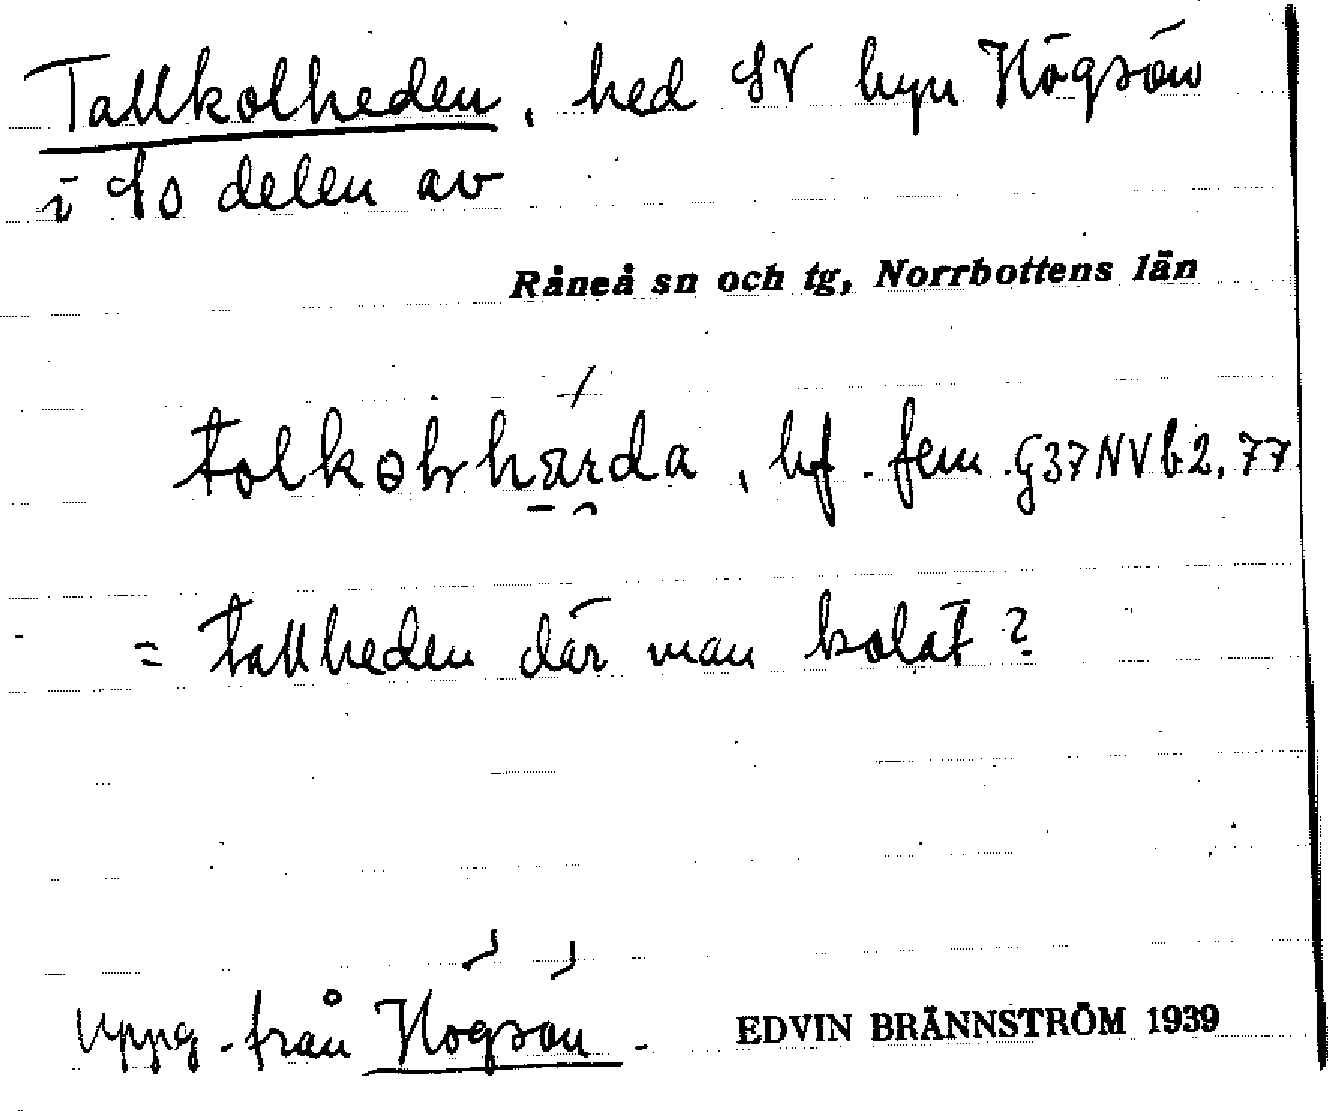 Tallkolheden, hed SV byn Högsön
i So delen av
Råneå sn och tg, Norrbottens län
bf. fem. G37NVb2,77
= tallheden där man kolat?
Uppg. från Högsön.
EDVIN BRÄNNSTRÖM 1939